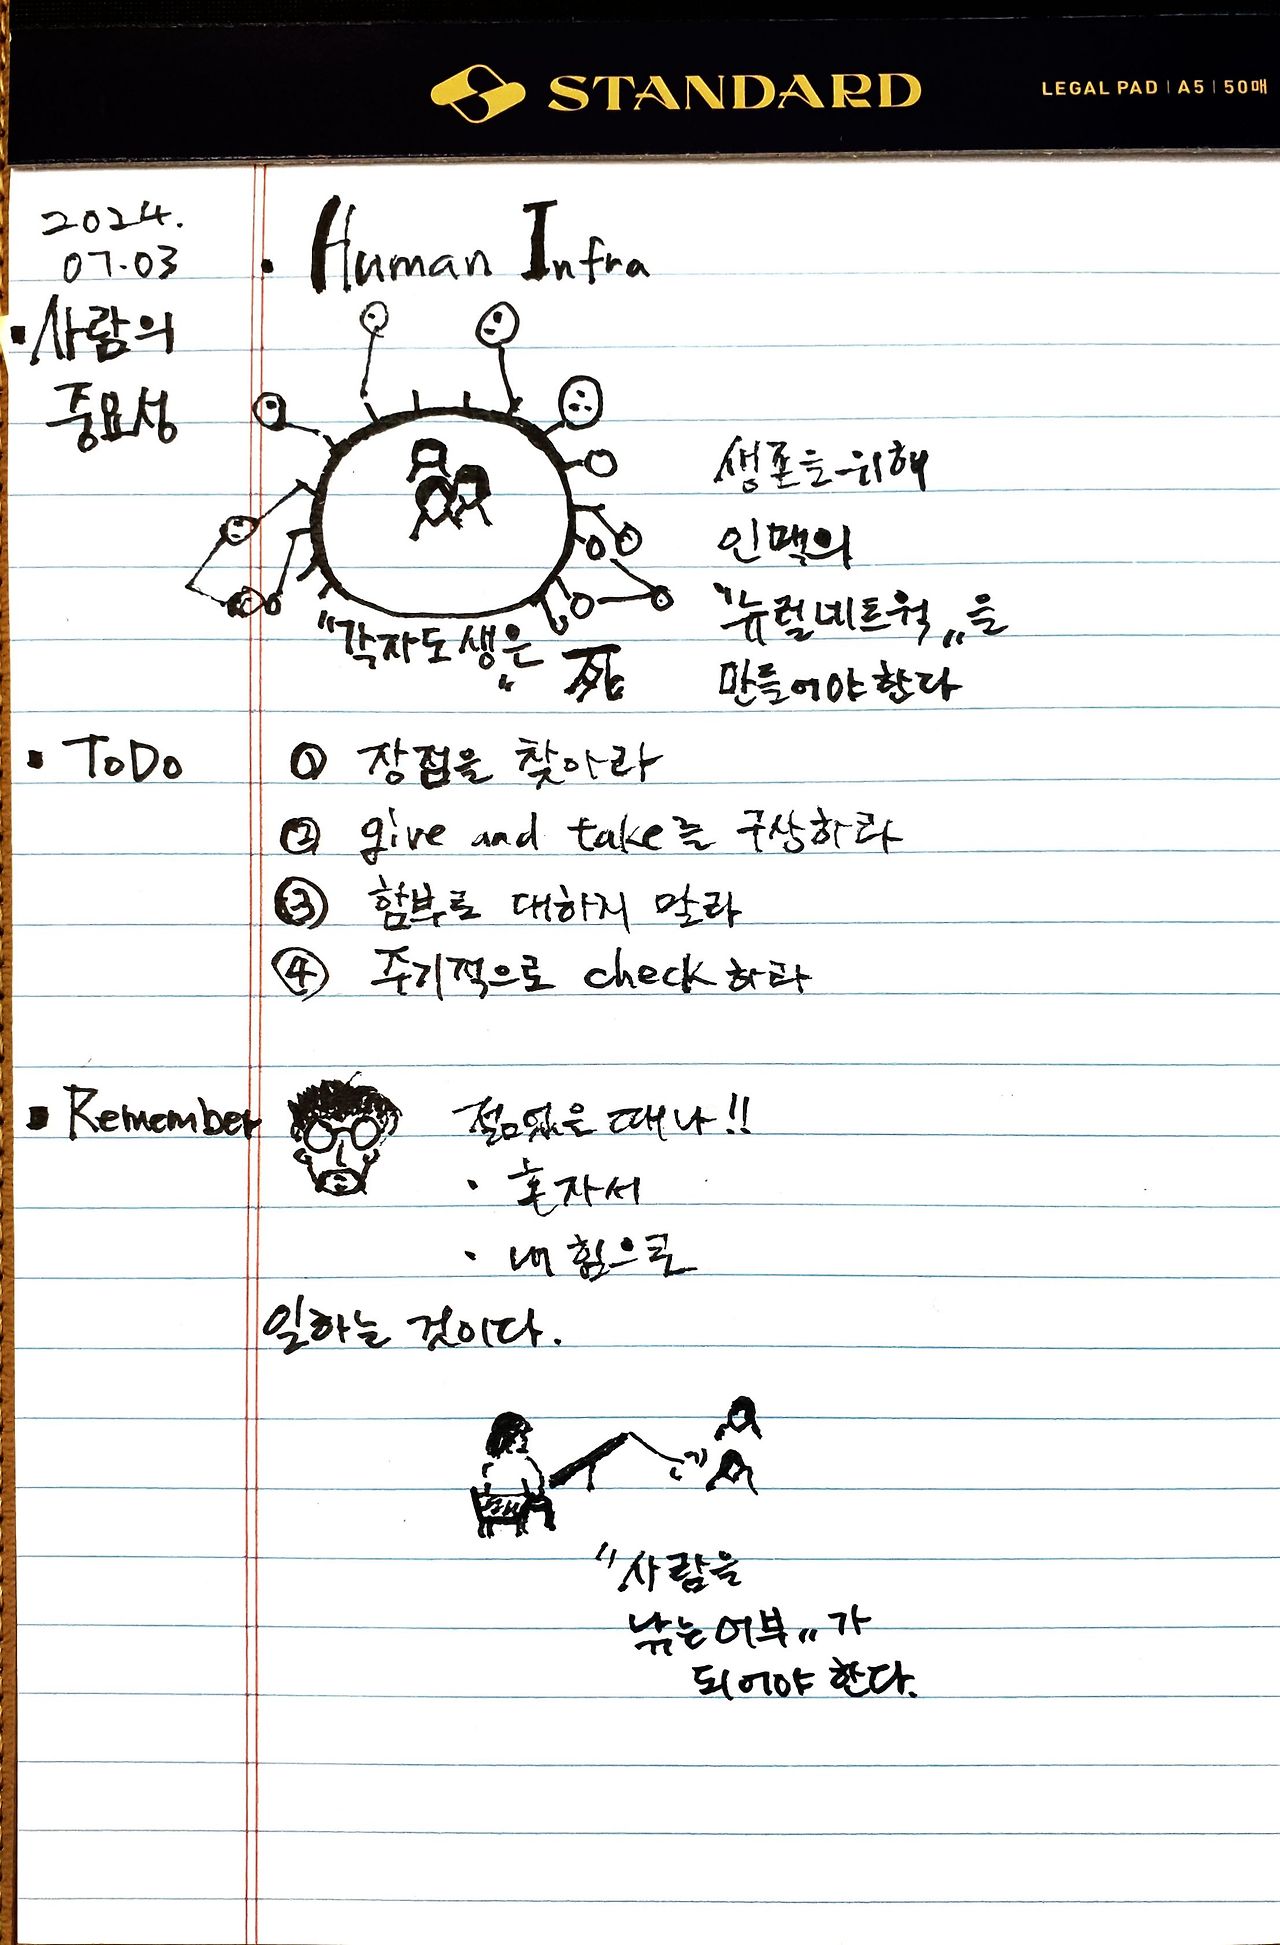 STANDARD
LEGAL PAD | A5 | 50매
2024.
07.03
· Human Infra
▪ 사람의
중요성
생존을 위해
인맥의
"뉴럴네트웍"을
만들어야 한다
"각자도생은" 死
▪ ToDo
① 장점을 찾아라
② give and take를 구상하라
③ 함부로 대하지 말라
④ 주기적으로 check 하라
▪ Remember
젊었을 때나!!
· 혼자서
· 내 힘으로
일하는 것이다.
"사람을
낚는 어부"가
되어야 한다.